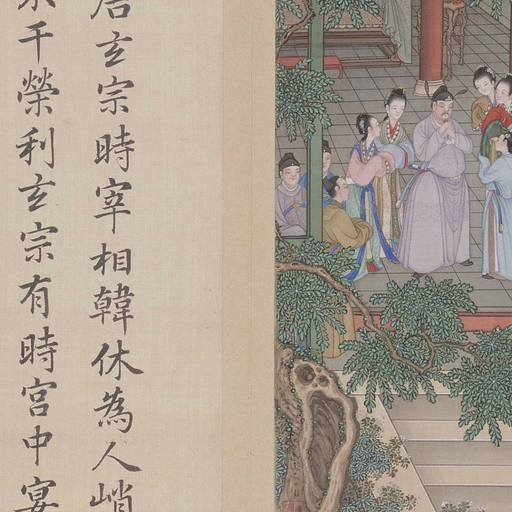 唐玄宗時宰相韓休為人峭
千榮利玄宗有時宮中宴